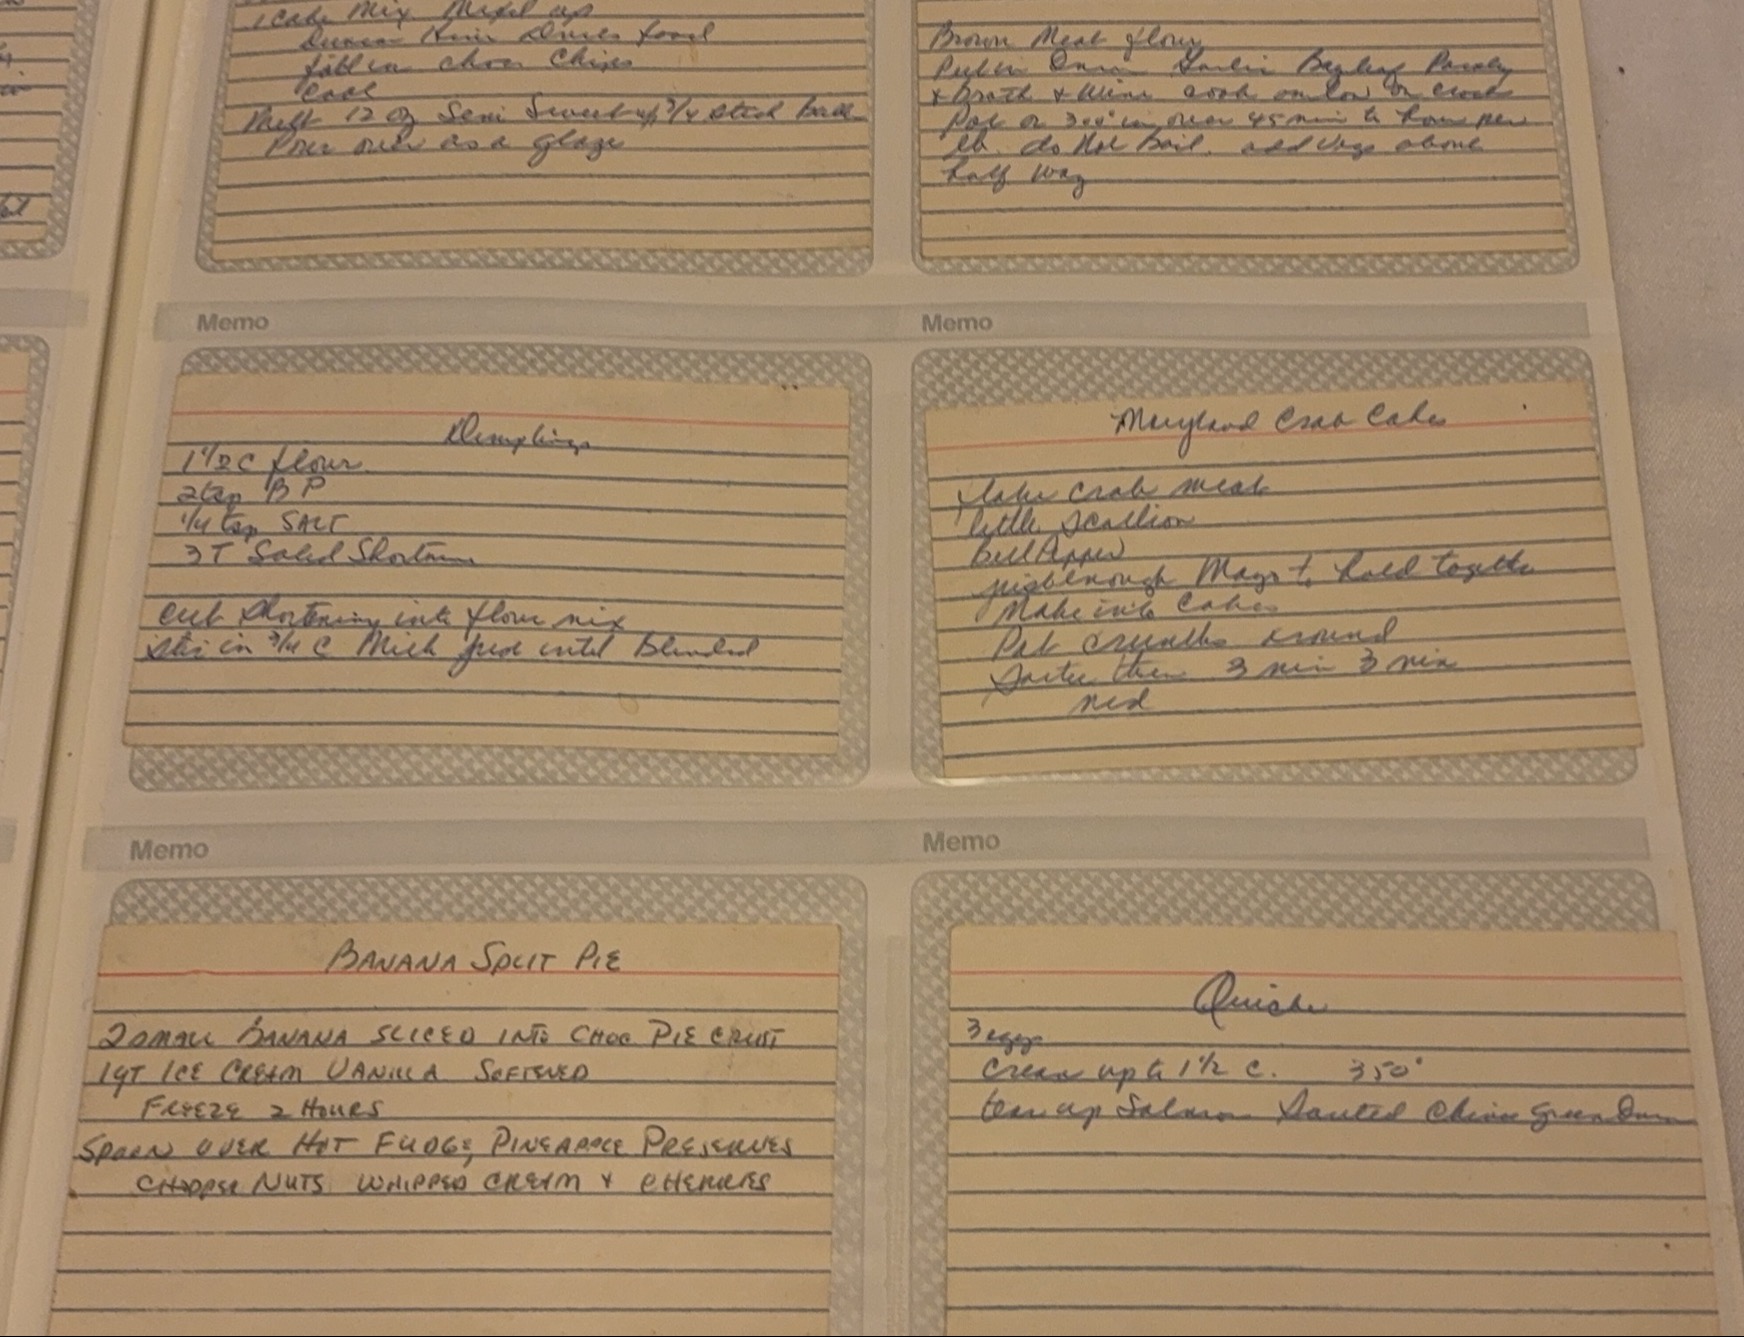 1 Cake Mix Mixed up
Duncan Hines Devils food
fold in choc Chips
Cool
Melt 12 oz Semi Sweet w/ 3/4 stick butter
Pour over as a glaze
Brown Meat flour
Put in Onion Garlic Bayleaf Parsley
+ Broth + Wine cook on low in crock
Pot or 300° in oven 45 min to hour per
lb. do Not Boil. add Vegs about
half way
Memo
Memo
Dumplings
1 1/2 C flour
2 tsp BP
1/4 tsp SALT
3 T Solid Shortening
cut shortening into flour mix
stir in 3/4 C Milk just until Blended
Maryland Crab Cakes
take crab meat
little scallion
Bell Pepper
just enough Mayo to hold together
Make into Cakes
Pat crumbs around
Saute them 3 min 3 min
med
Memo
Memo
BANANA SPLIT PIE
2 SMALL BANANA SLICED INTO CHOC PIE CRUST
1 QT ICE CREAM VANILLA SOFTENED
FREEZE 2 HOURS
SPOON OVER HOT FUDGE, PINEAPPLE PRESERVES
CHOPPED NUTS WHIPPED CREAM + CHERRIES
Quiche
3 eggs
Cream up to 1 1/2 c. 350°
tear up Salmon Sauted Chives Green Onion